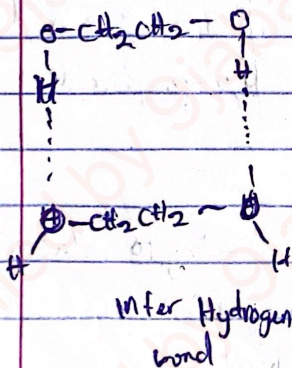 O-CH2CH2-O
H H
O-CH2CH2-O
H H
Inter Hydrogen
bond